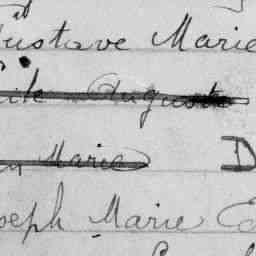 Gustave Marie
Auguste
Marie D
Joseph Marie E